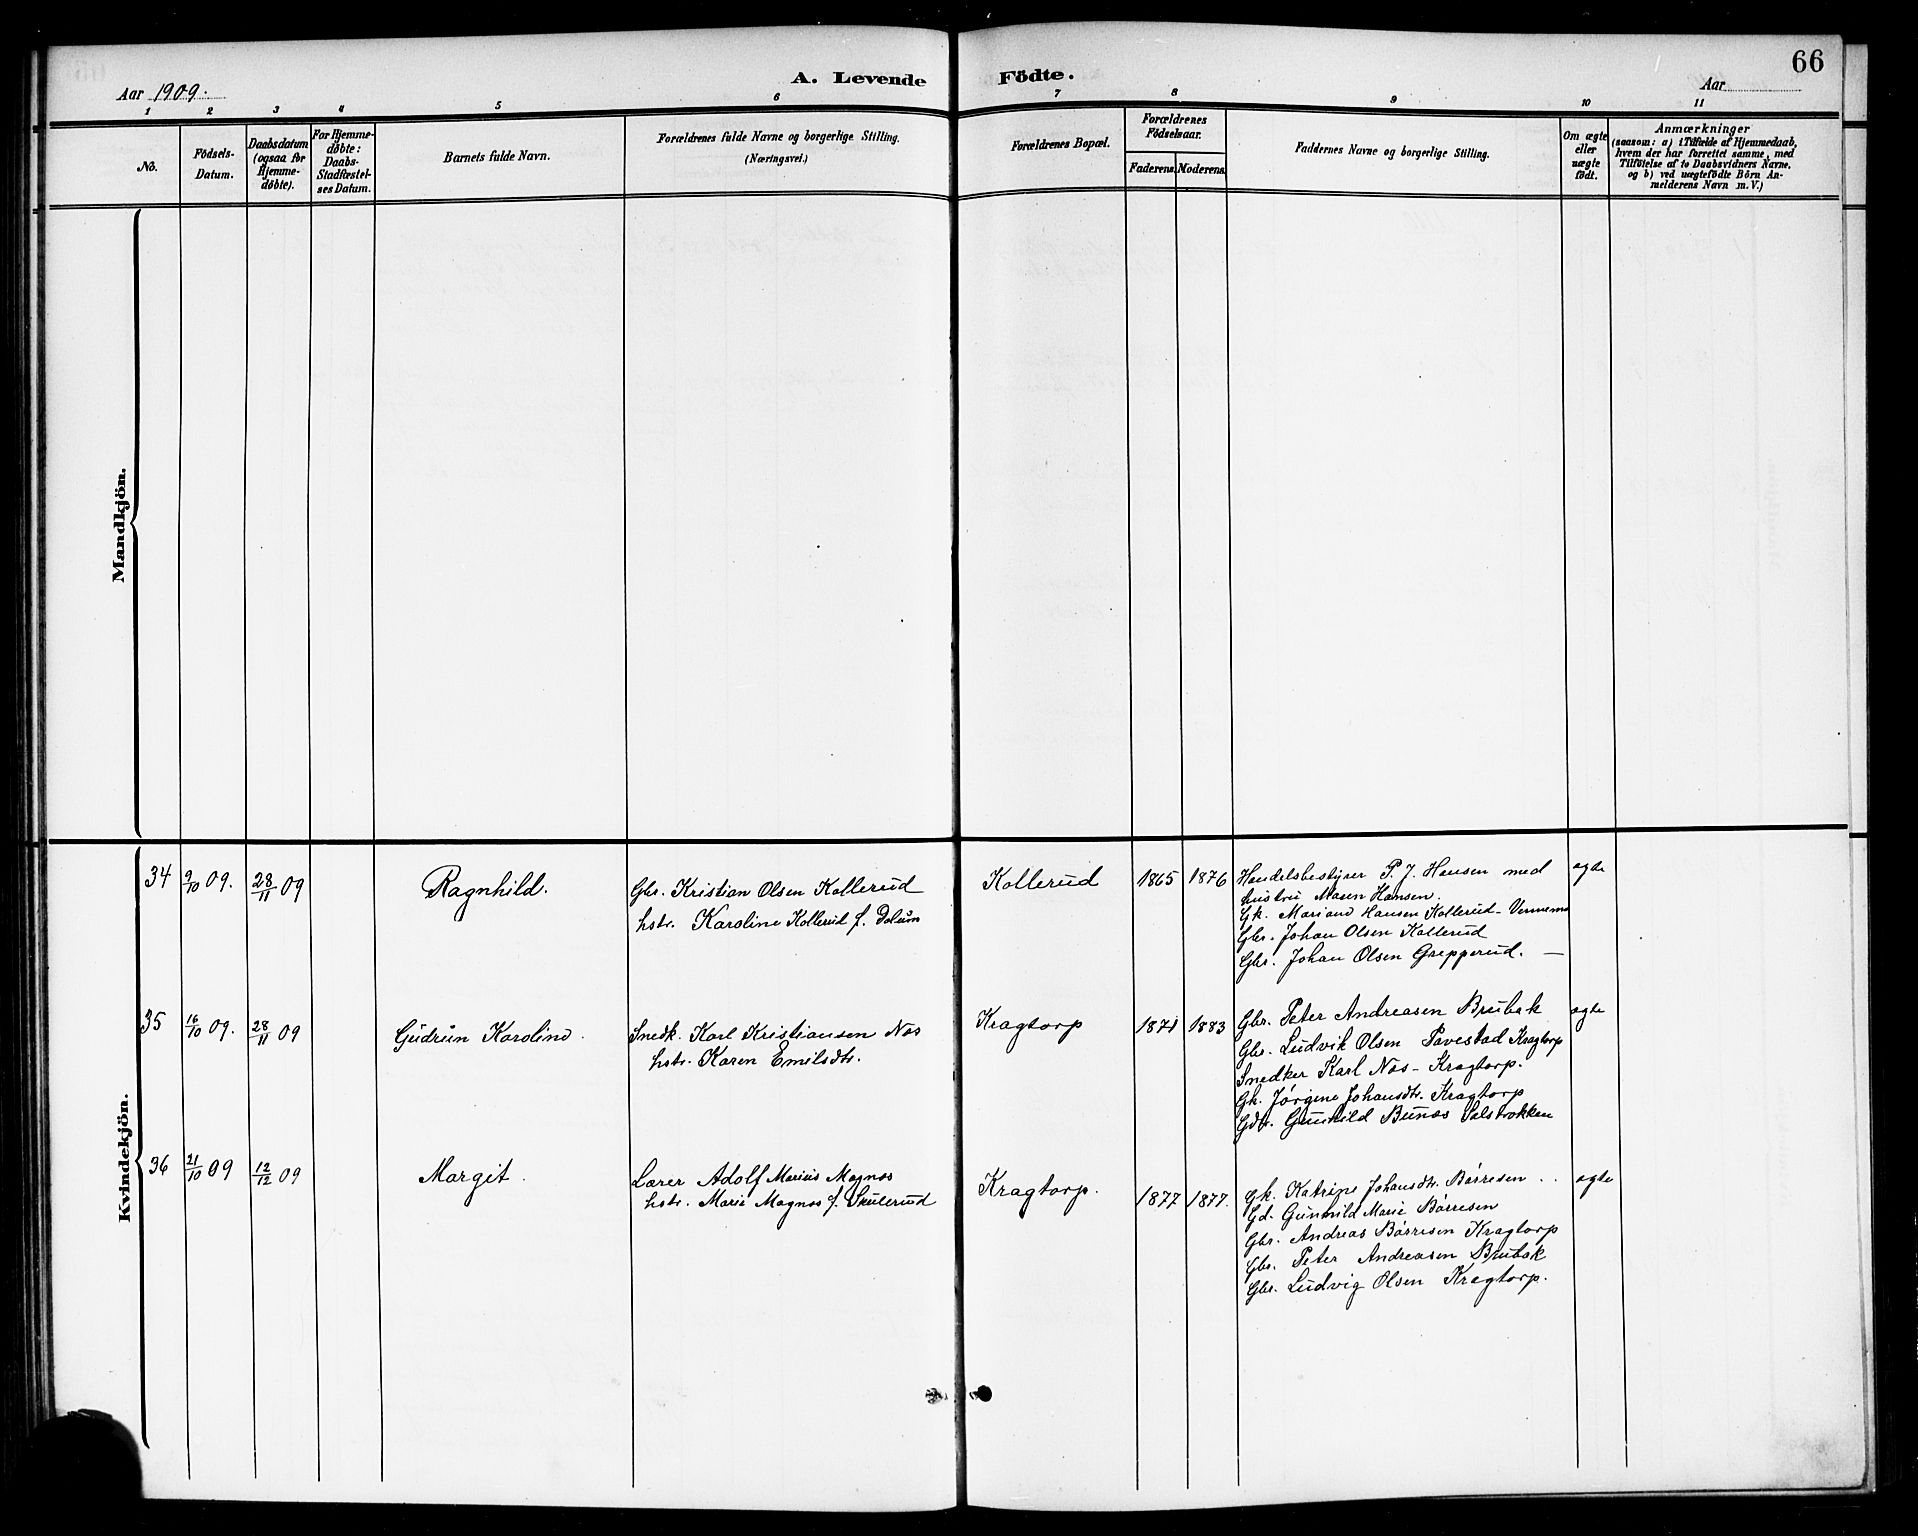 66
A. Levende Födte.
Aar 1909.
Aar
1 2 3 4 5 6 7 8 9 10 11
No.
Födsels-Datum.
Daabsdatum (ogsaa for Hjemme-döbte).
For Hjemme-döbte: Daabs-Stadfæstel-ses Datum.
Barnets fulde Navn.
Forældrenes fulde Navne og borgerlige Stilling.
(Næringsvei.)
Forældrenes Bopæl.
Forældrenes Födselsaar.
Faderens. Moderens.
Faddernes Navne og borgerlige Stilling.
Om ægte eller uægte födt.
Anmærkninger
(saasom: a) i Tilfælde af Hjemmedaab,
hvem der har forrettet samme, med
Tilföielse af to Daabsvidners Navne.
og b) ved uægtefödte Börn An-
melderens Navn m. V.)
Mandkjön.
Kvindekjön.
34 9/10 09. 28/11 09 Ragnhild. Gbr. Kristian Olsen Kollerud
hstr. Karoline Kollerud f. Dolum
Kollerud 1865 1876 Handelsbestyrer P. J. Hansen med
hustru Maren Hansen.
Gk. Mariane Hansen Kollerud
Gbr. Johan Olsen Kollerud
Gbr. Johan Olsen Grepperud. —
ægte
35 16/10 09. 28/11 09 Gudrun Karoline. Snedk. Karl Kristiansen Næs
hstr. Karen Emilsdtr.
Kragtorp 1871 1883 Gbr. Peter Andreasen Brubæk
Gbr. Ludvik Olsen Pavestad Kragtorp
Snedker Karl Næs - Kragtorp.
Gk. Jørgine Johansdtr. Kragtorp
Gdt. Gunhild Bunæs
ægte
36 21/10 09 12/12 09 Margit. Lærer Adolf Marius Magnæs
hstr. Marie Magnæs f. Skulerud
Kragtorp. 1877 1877. Gk. Katrine Johansdtr. Børresen
Gd. Gunhild Marie Børresen
Gbr. Andreas Børresen Kragtorp
Gbr. Peter Andreasen Brubæk
Gbr. Ludvig Olsen Kragtorp.
ægte